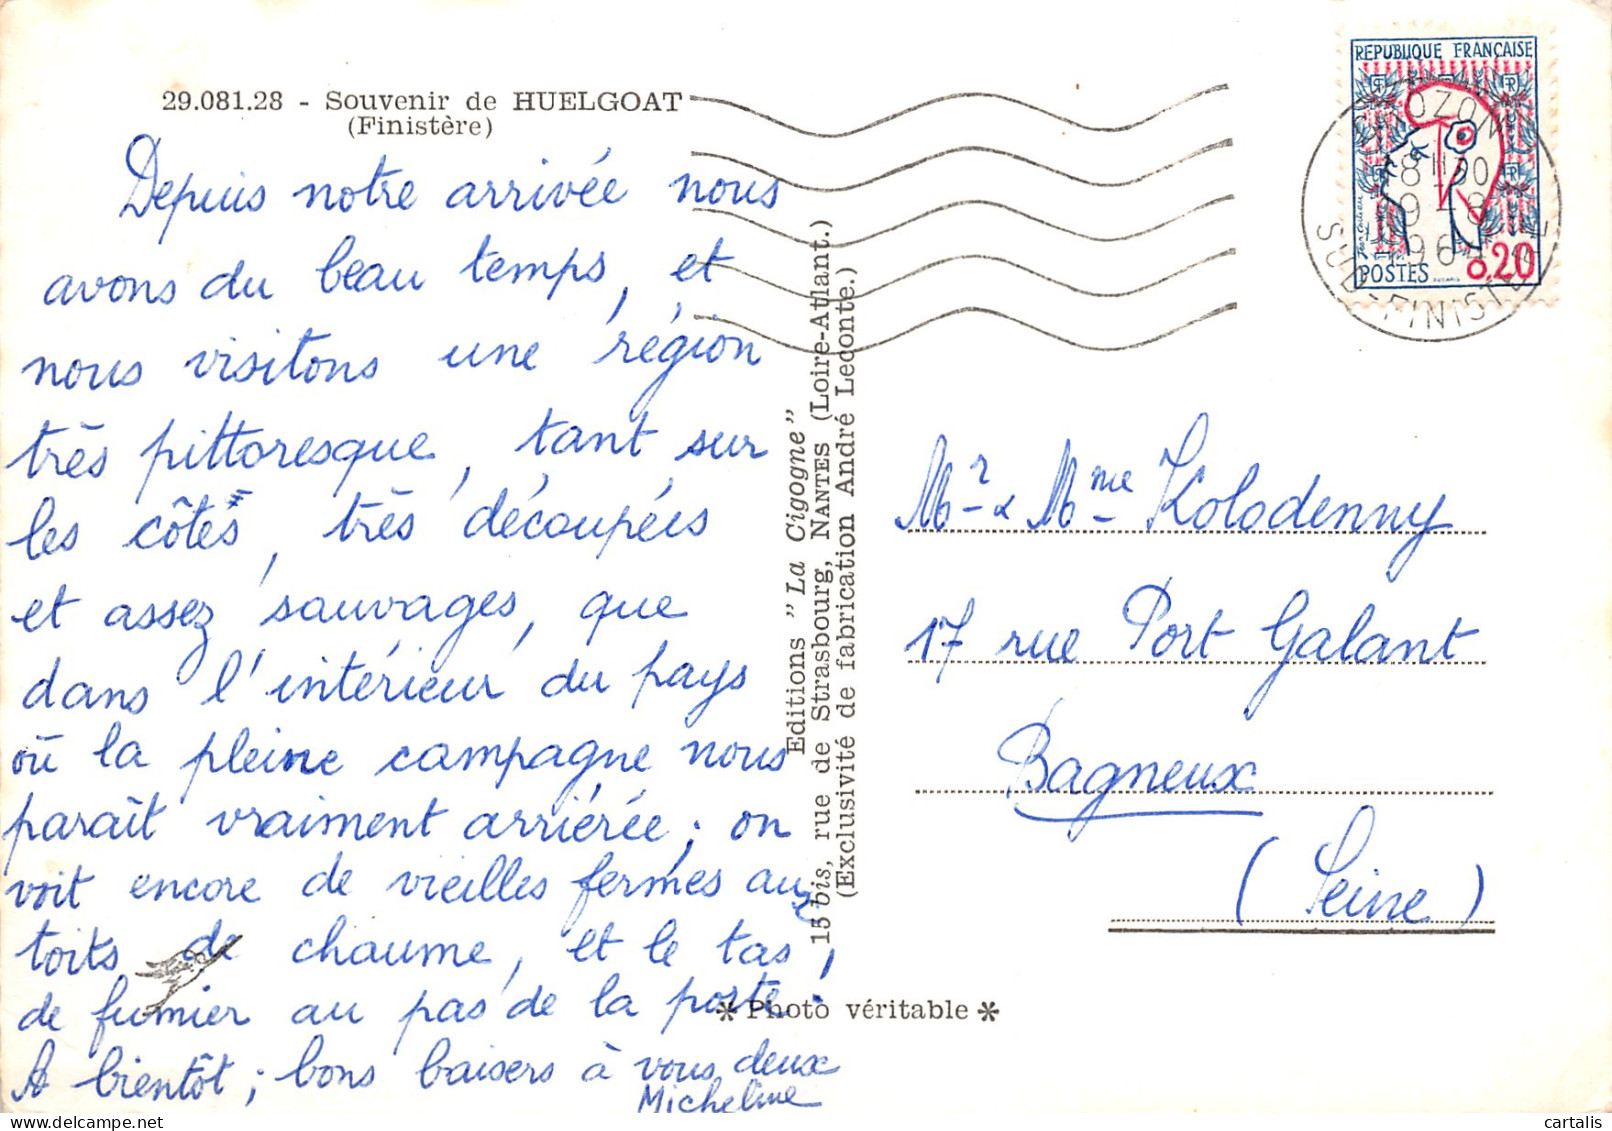 29.081.28 - Souvenir de HUELGOAT
(Finistère)
Depuis notre arrivée nous
avons du beau temps, et
nous visitons une région
très pittoresque, tant sur
les côtes, très découpées
et assez sauvages, que
dans l'intérieur du pays
où la pleine campagne nous
paraît vraiment arriérée ; on
voit encore de vieilles fermes aux
toits de chaume, et le tas
de fumier au pas de la porte.
A bientôt ; bons baisers à vous deux
Micheline
Editions "La Cigogne"
15 bis, rue de Strasbourg, NANTES (Loire-Atlant.)
(Exclusivité de fabrication André Leconte.)
* Photo véritable *
REPUBLIQUE FRANÇAISE
POSTES 0,20
CROZON
18H30
9-8
SUD-FINISTERE
Mr & Mme Kolodenny
17 rue Port Galant
Bagneux
(Seine)
cartalis